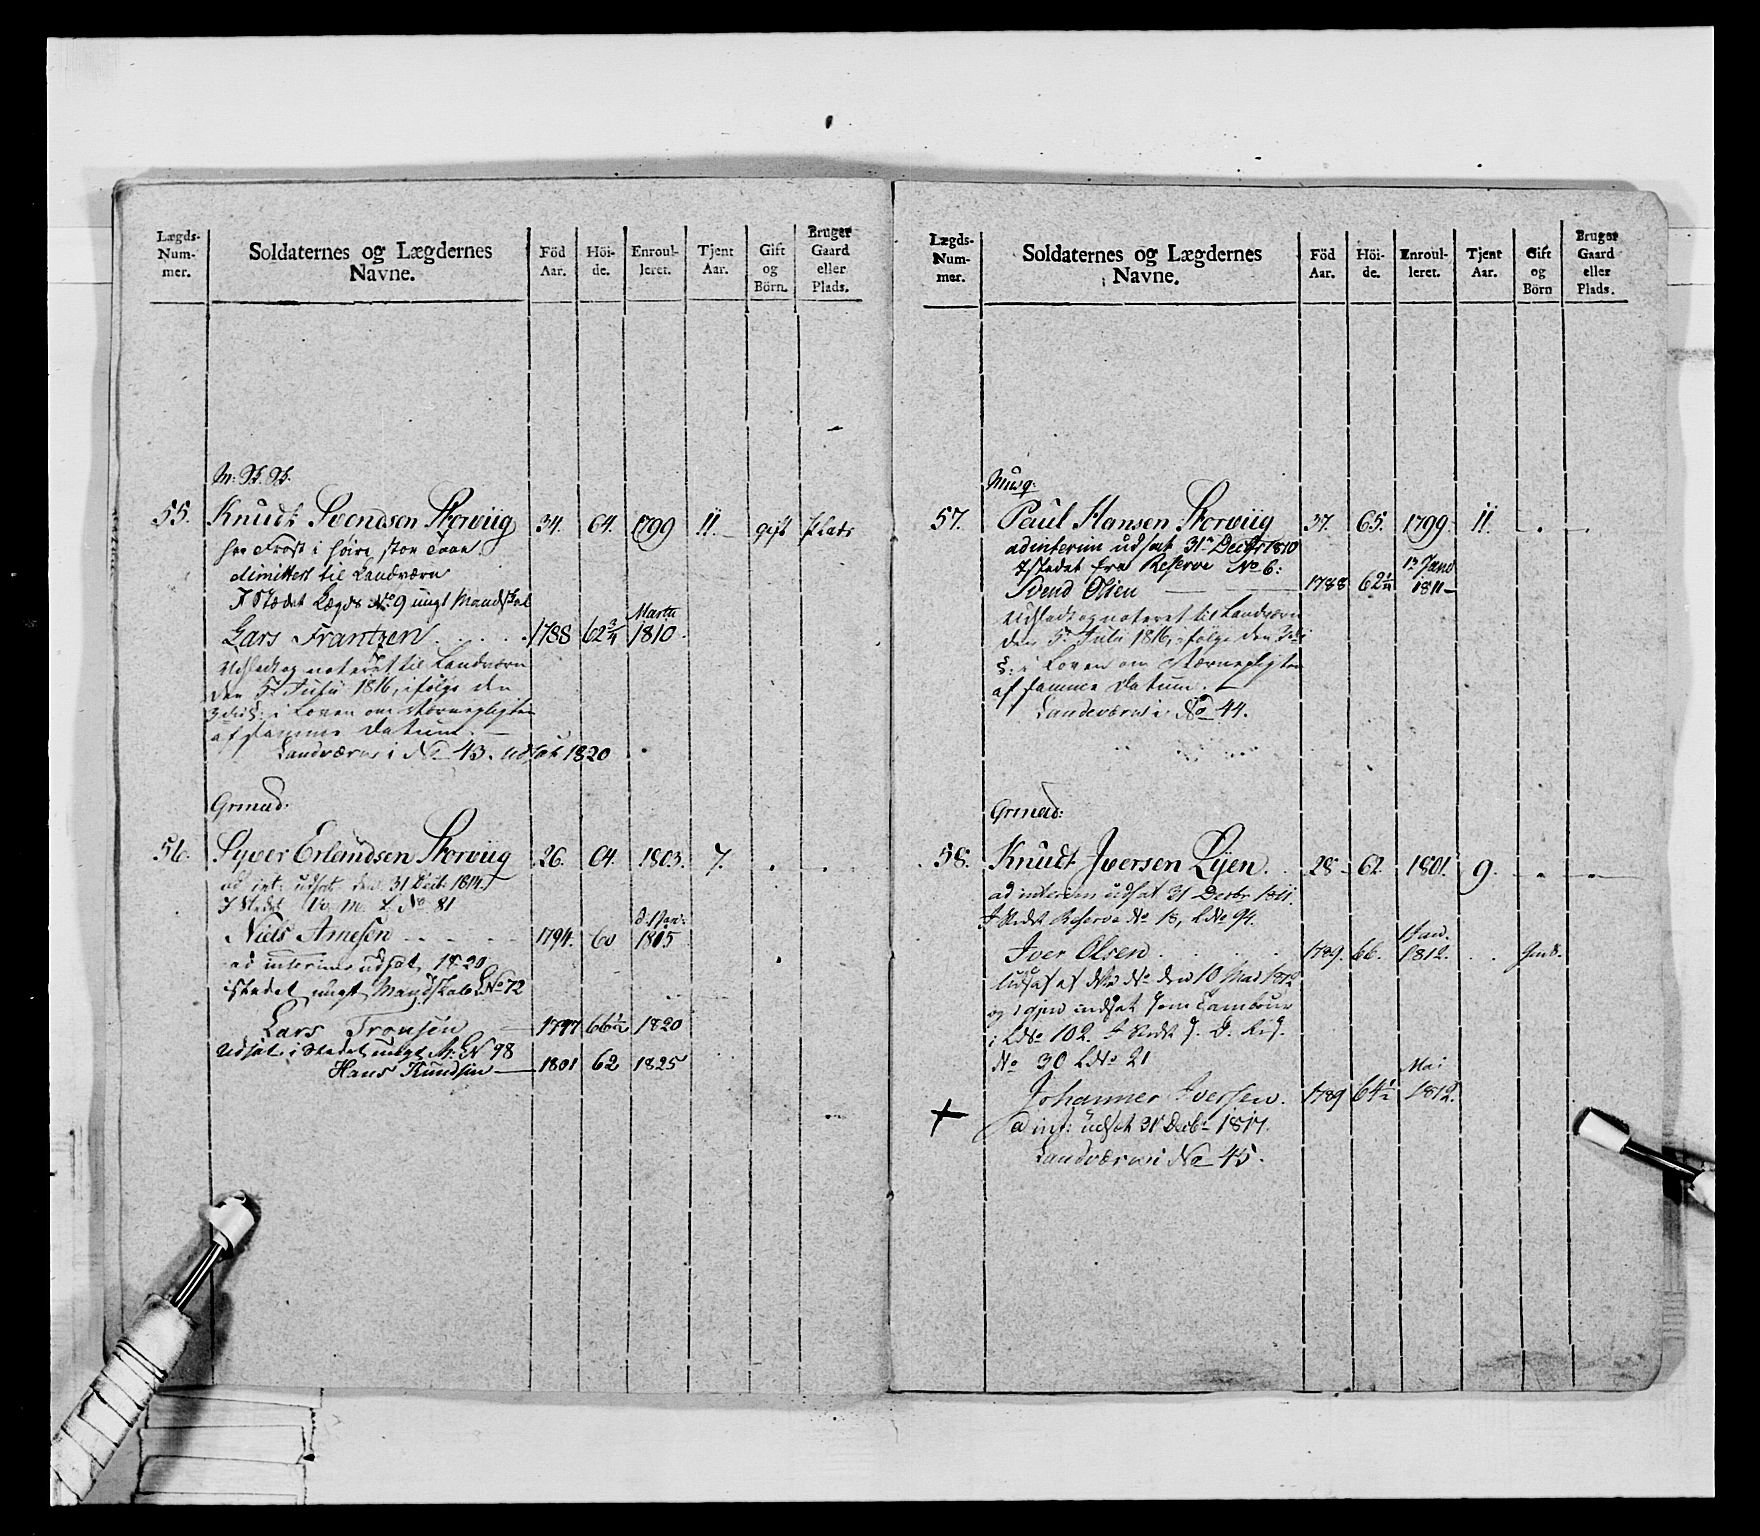 Lægds-Num-mer. Soldaternes og Lægdernes Navne. Föd Aar. Höi-de. Enroul-leret. Tjent Aar. Gift og Börn. Bruger Gaard eller Plads.
55. Knudt Svendsen Storviig 34. 64. 1799 11. gift Plads
har Frost i høire stor Taae.
dimittert til Landværn
I Stædet Lægds No 9 ungt Mandskab
Lars Frantzen 1788 62 3/4 Martii 1810.
Udsladt og noteret til Landværn
den 5 Julii 1816, ifølge den
3die §: i Loven om Værnepligten
af samme Datum.
Landværns i No 43. Udsat 1820
Grenad:
56. Syver Erlandsen Storviig 26. 64. 1803. 7.
ad int: udsat den 31 Decb: 1814.
I Stedet No 81
Niels Arnesen 1794. 60 d. 1 Jan: 1815
ad interim udsat 1820
istedet ungt Mandskab LNo 72
Lars Tronsen 1797 66 1/2 1820
Udsat, i Stedet ungt M. LN 98
Hans Knudsen 1801 62 1825
Lægds-Num-mer. Soldaternes og Lægdernes Navne. Föd Aar. Höi-de. Enroul-leret. Tjent Aar. Gift og Börn Bruger Gaard eller Plads.
Musq:
57. Paul Hansen Storviig 37. 65. 1799. 11.
ad interim udsat 31 Decbr 1810
Istedet fra Reserve No 6:
Svend Olsen 1788 62 1/4 1 Janu 1811
Udsladt og noteret til Landværn
den 5 Julii 1816, ifølge den 3die
§: i Loven om Værnepligten
af samme Datum.
Landværns i No 44.
Grenad:
58. Knudt Iversen Lijen. 28 62. 1801. 9.
ad interim udsat 31 Decbr 1811.
I Stedet Reserve No 18, LNo 94.
Iver Olsen 1789. 66. 1 Jan. 1812.
Udsat af dette No den 10 Mai 1812
og igjen indsat som Tambour
i LNo 102. I Stedet
No 30 LNo 21
Johannes Iversen. 1789 64 1/2 Mai 1812.
ad int: udsat 31 Decbr 1817.
Landværns i No 45.